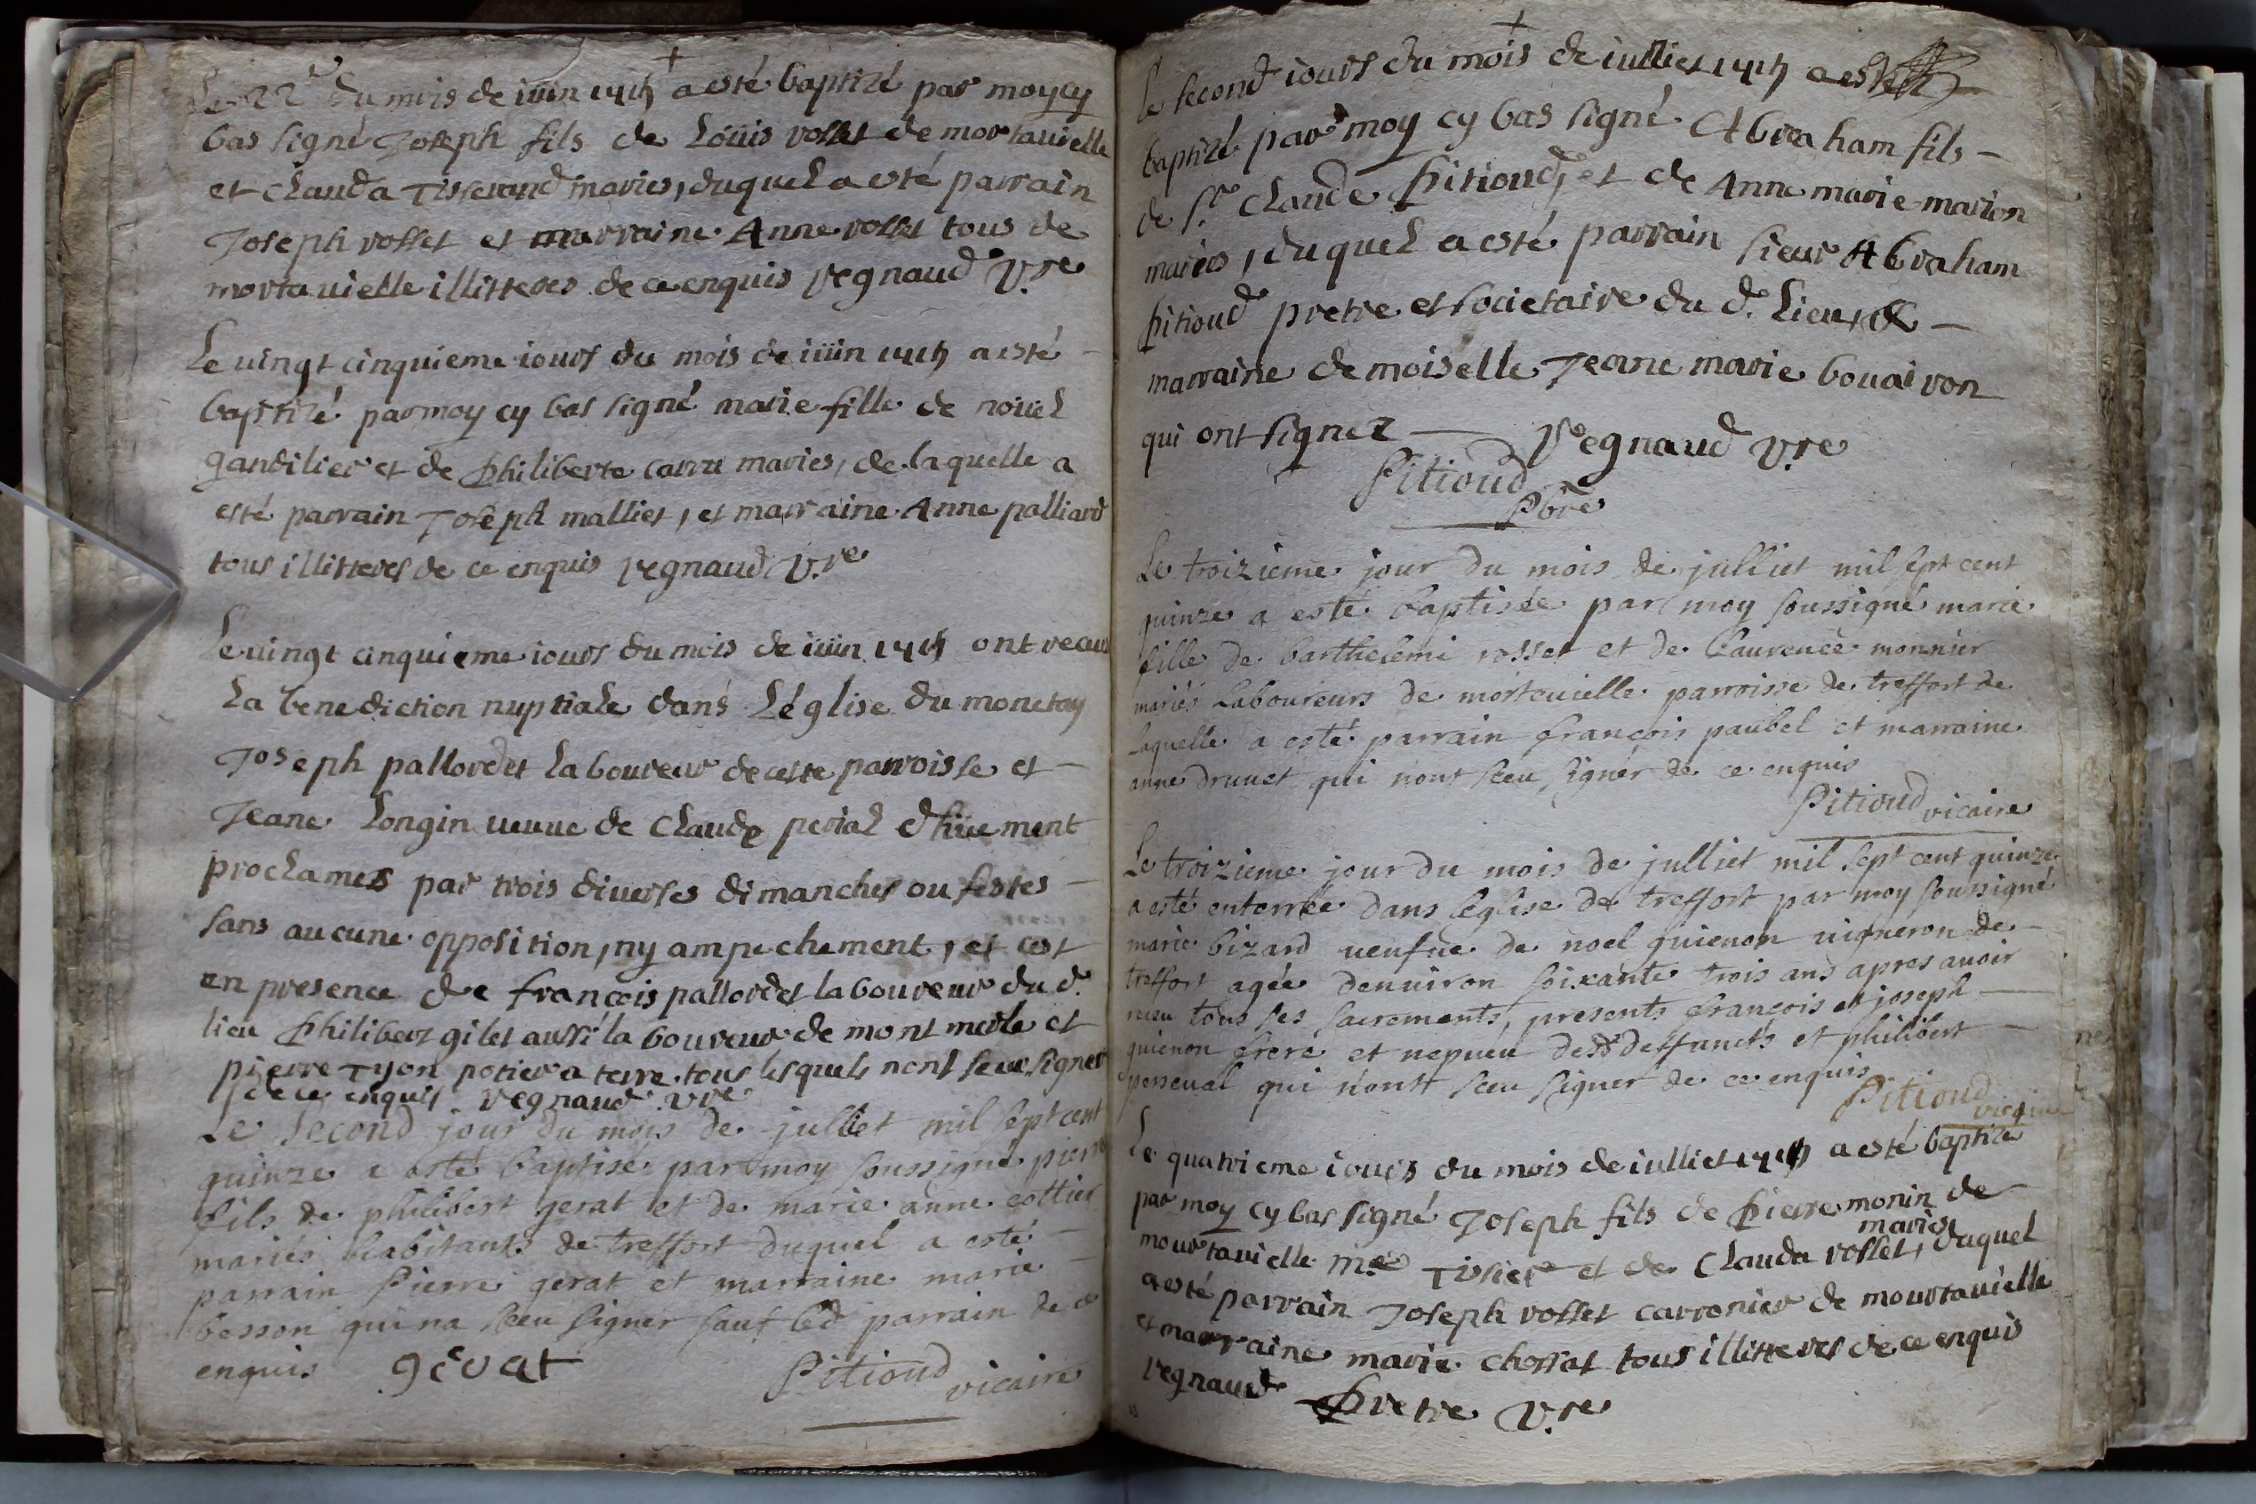 Le 22e du mois de iüin 1715 a esté baptizé par moy cy
bas signé Joseph fils de Loüis rosset de mortauielle
et Clauda Tisserand maries, duquel a esté parrain
Joseph rosset et marraine Anne rosset tous de
mortauielle illitteres de ce enquis regnaud V.re
Le uingt cinquieme iours du mois de iüin 1715 a esté
baptizé par moy cy bas signé marie fille de noüel
gandilier et de Philiberte carru maries, de laquelle a
esté parrain Joseph malliet, et marraine Anne palliard
tous illitteres de ce enquis regnaud V.re
Le uingt cinquieme iours du mois de iüin 1715 ont receus
La benediction nuptiale dans L'église du monetay
Joseph pallordet laboureur de cette parroisse et
Jeane Longin ueuue de Claude perial dhüement
proclames par trois diuerses dimanches ou festes
sans aucune opposition, ny ampechement, et cest
en presence de françois pallordet laboureur du d.
lieu Philibert gilet aussi laboureur de mont merle et
pierre Tyon potier a terre tous lesquels nont sceu signer
de ce enquis regnaud vre
Le second jour du mois de julliet mil sept cent
quinze a esté baptisé par moy soussigné pierre
fils de philibert gerat et de marie anne cottier
mariés habitants de treffort duquel a esté
parrain Pierre gerat et marraine marie
besson qui na sceu signer sauf led parrain de ce
enquis gérat Pitioud vicaire
le second iours du mois de iulliet 1715 a esté
baptizé par moy cy bas signé Abraham fils
de Sr Claude Pitioud, et de Anne marie marion
maries, duquel a esté parrain sieur Abraham
Pitioud pretre et societaire du d. Lieu, &
marraine demoiselle Jeane marie bouairon
qui ont signez regnaud V.re
Pitioud
Pbre
Le troizieme jour du mois de julliet mil sept cent
quinze a esté baptisée par moy soussigné marie
fille de barthelemi rosset et de Laurence monnier
mariés Laboureurs de mortouielle parroisse de treffort de
laquelle a esté parrain françois paubel et marraine
anne druuet qui nont sceu signér de ce enquis
Pitioud vicaire
Le troizieme jour du mois de julliet mil sept cent quinze
a esté enterrée dans leglise de treffort par moy soussigné
marie bizard ueufue de noel guienon uigneron de
treffort agée denuiron soixante trois ans apres auoir
receu tous ses sacrements, presents françois et joseph
guienon frere et nepueu desd deffuncts et philibert
perseual qui nont sceu signer de ce enquis
Pitioud vicaire
Le quatrieme iours du mois de iulliet 1715 a esté baptizé
par moy cy bas signé Joseph fils de Pierre monin de
mourtauielle me Tissier et de Clauda rosset, maries, duquel
a esté parrain Joseph rosset carronier de mourtauielle
et marraine marie chossat tous illitteres de ce enquis
regnaud Pretre V.re